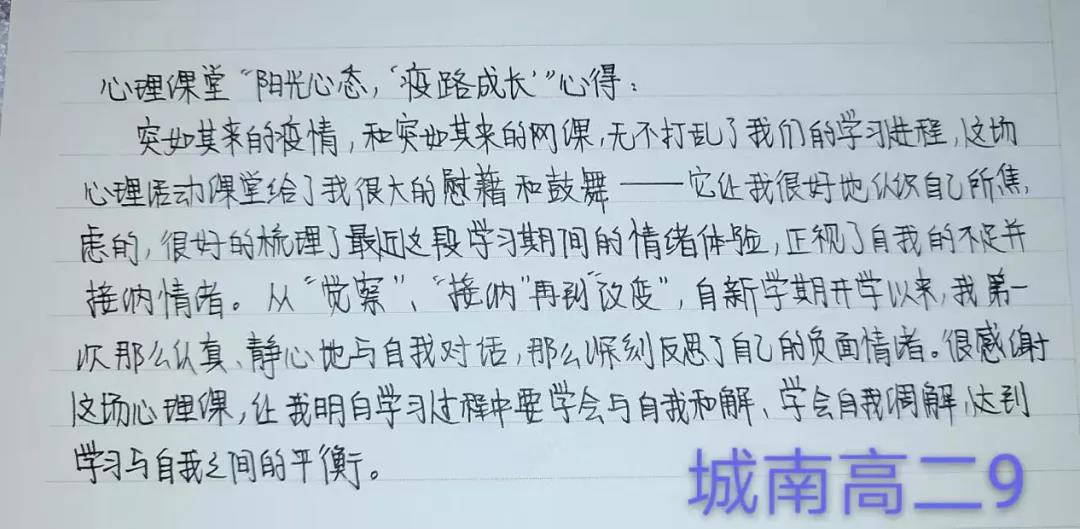 心理课堂“阳光心态,‘疫路成长’”心得:
突如其来的疫情,和突如其来的网课,无不打乱了我们的学习进程,这场
心理活动课堂给了我很大的慰藉和鼓舞——它让我很好地认识自己所焦
虑的,很好的梳理了最近这段学习期间的情绪体验,正视了自我的不足并
接纳情绪。从“觉察”、“接纳”再到“改变”,自新学期开学以来,我第一
次那么认真、静心地与自我对话,那么深刻反思了自己的负面情绪。很感谢
这场心理课,让我明白学习过程中要学会与自我和解、学会自我调解,达到
学习与自我之间的平衡。
城南高二9